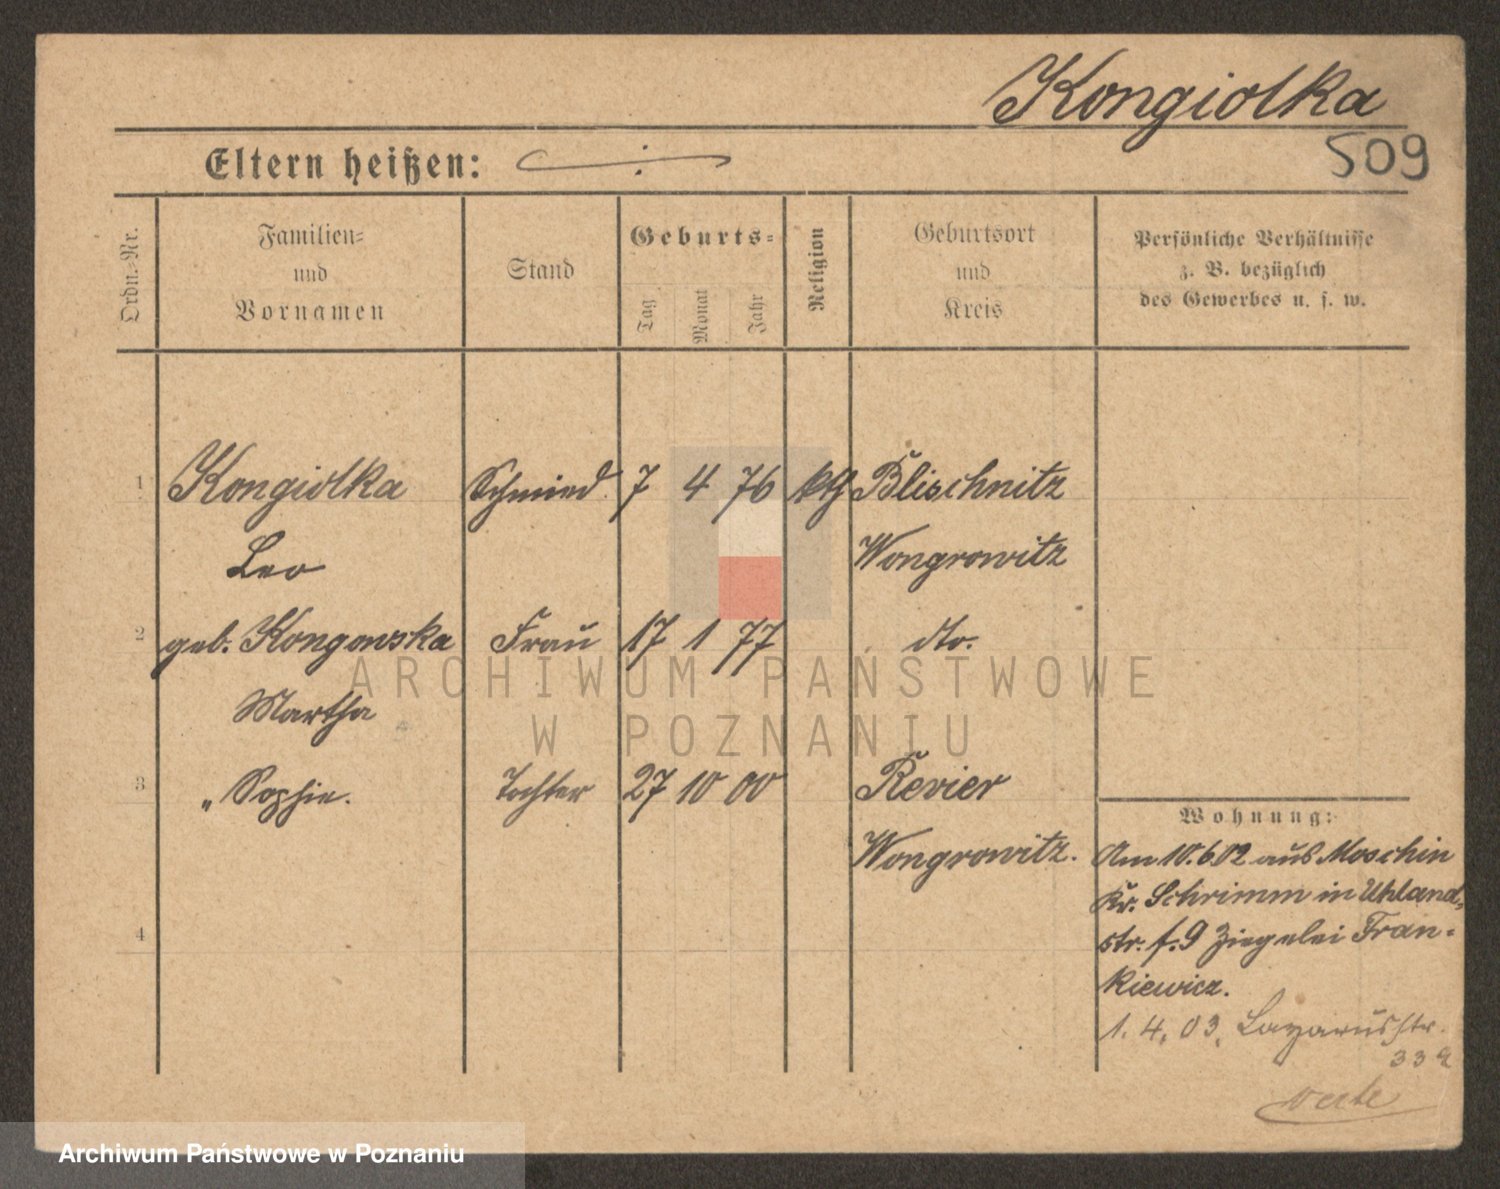 Kongiolka
509
Eltern heißen: ÷
Ordn.-Nr.
Familien-
und
Vornamen
Stand
Geburts-
Tag
Monat
Jahr
Religion
Geburtsort
und
Kreis
Persönliche Verhältnisse
z. B. bezüglich
des Gewerbes u. s. w.
1 Kongiolka Schmied 7 4 76 kth Blischnitz
Leo Wongrowitz
2 geb. Kongowska Frau 17 1 77 dto.
Martha
3 " Sophie. Tochter 27 10 00 Revier
Wongrowitz.
4
Wohnung:
Am 10.6.02 aus Moschin
Kr. Schrimm in Uhland-
str. f. 9 Ziegelei Fran-
kiewicz.
1. 4. 03. Lazarusstr.
33a
ARCHIWUM PAŃSTWOWE
W POZNANIU
Archiwum Państwowe w Poznaniu